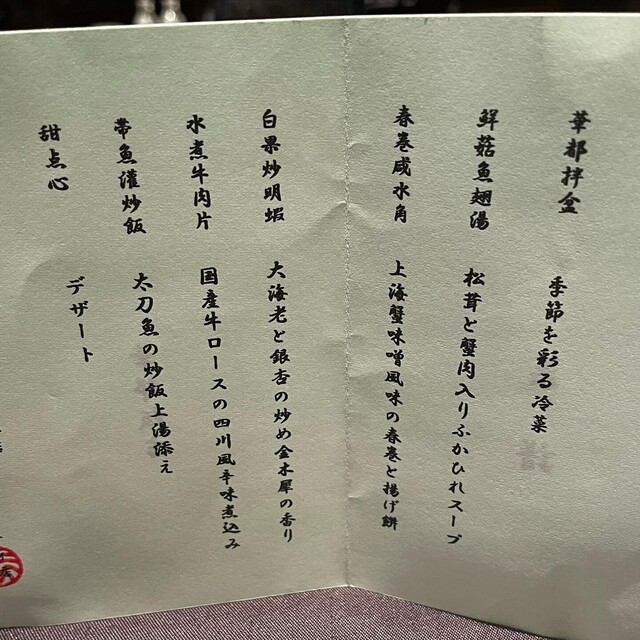 華都拌盆
季節を彩る冷菜
鮮菇魚翅湯
松茸と蟹肉入りふかひれスープ
春巻咸水角
上海蟹味噌風味の春巻と揚げ餅
白果炒明蝦
大海老と銀杏の炒め金木犀の香り
水煮牛肉片
国産牛ロースの四川風辛味煮込み
帯魚灌炒飯
太刀魚の炒飯上湯添え
甜点心
デザート